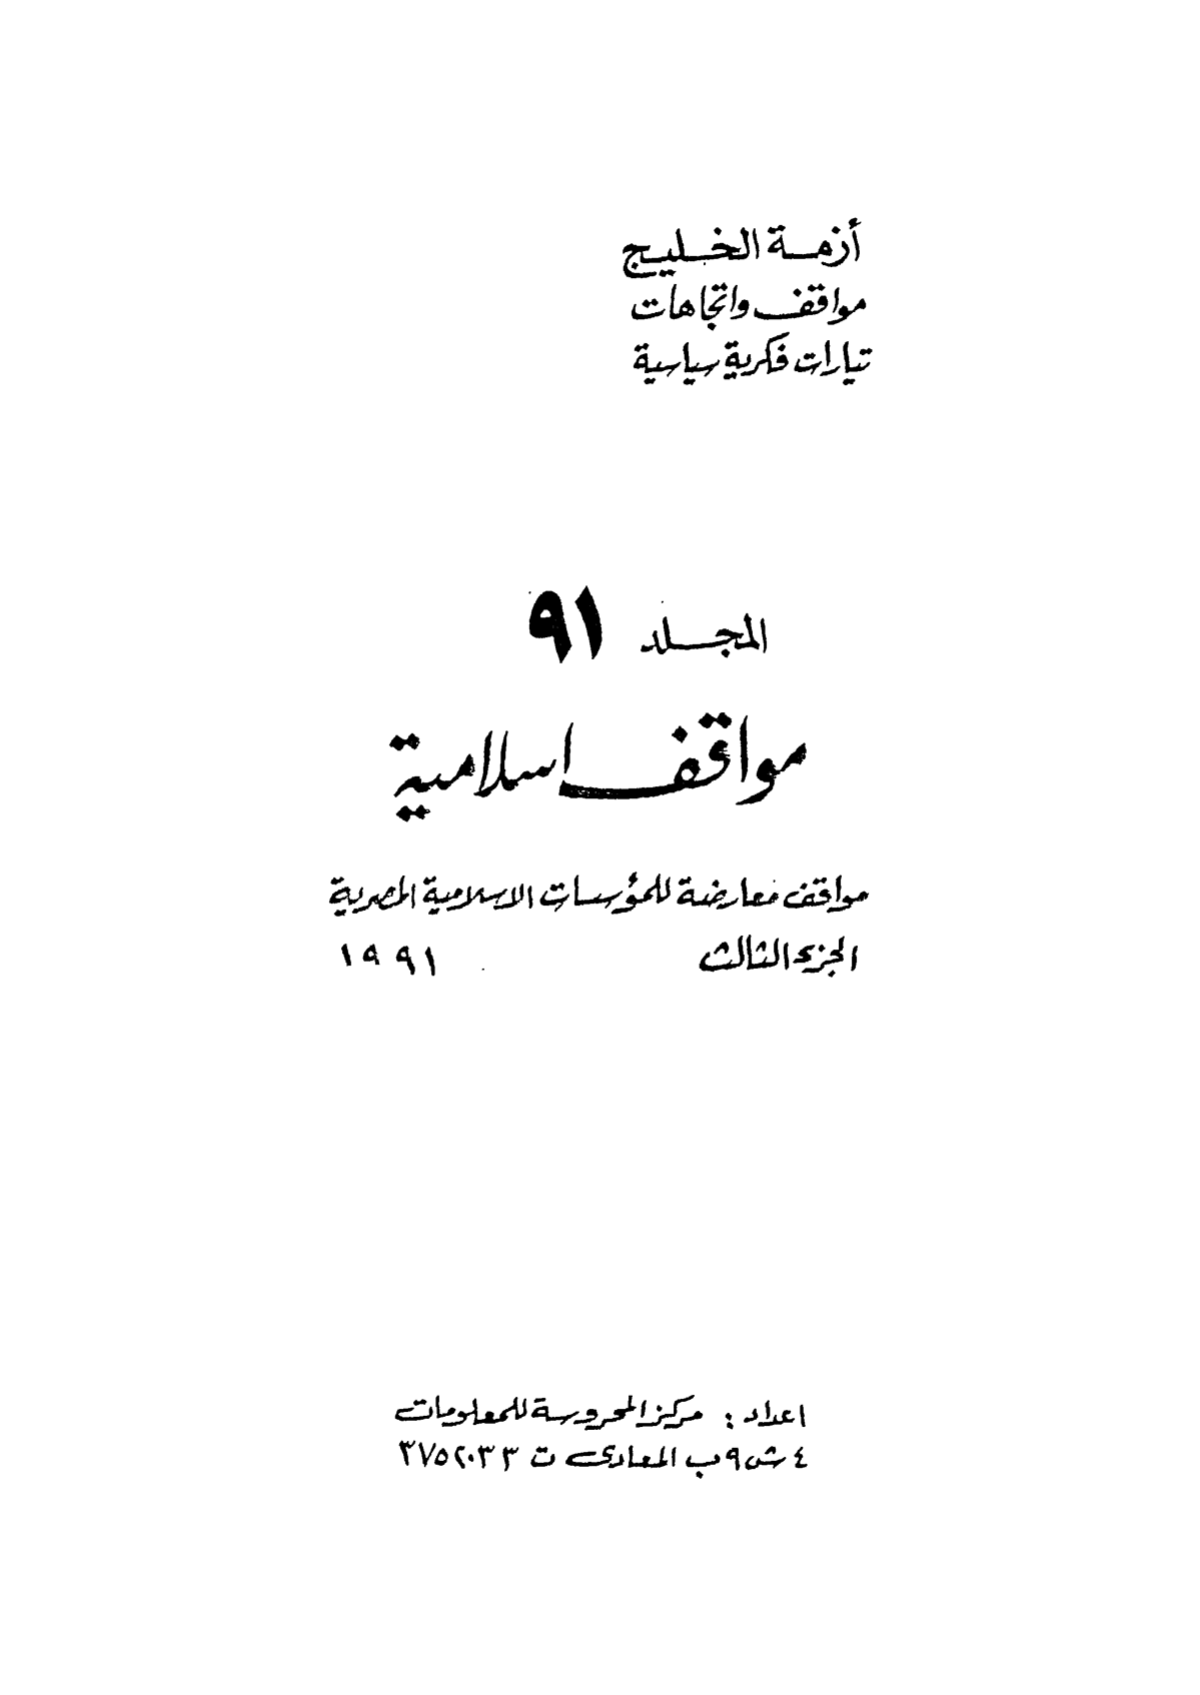 أزمة الخليج
مواقف واتجاهات
تيارات فكرية سياسية
المجلد ٩١
مواقف اسلامية
مواقف معارضة للمؤسسات الاسلامية المصرية
الجزء الثالث ١٩٩١
اعداد : مركز المحروسة للمعلومات
٤ ش ٩ ب المعادى ت ٣٧٥٢٠٣٣